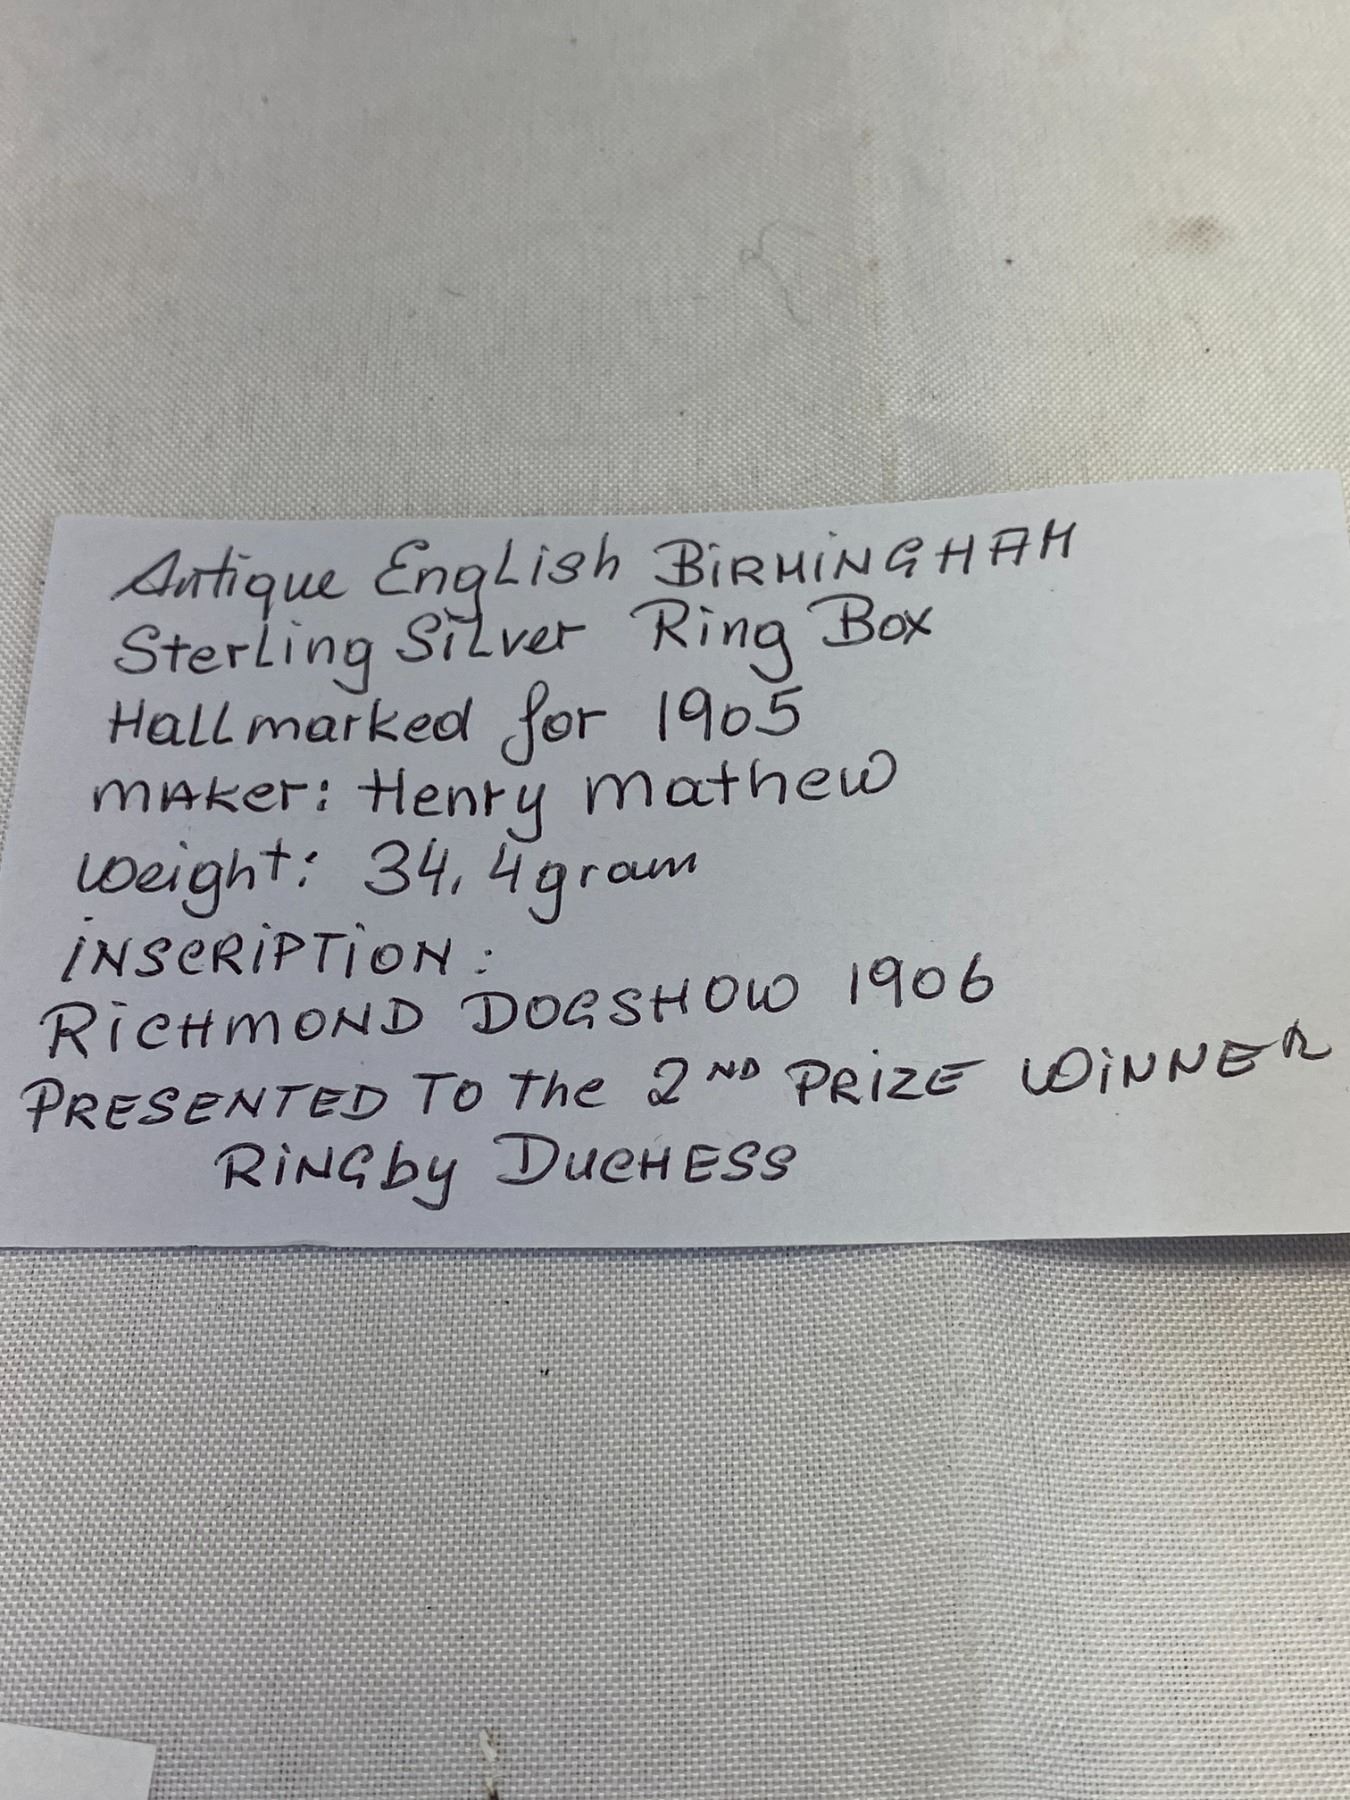 Antique English BIRMINGHAM
Sterling Silver Ring Box
Hallmarked for 1905
Maker: Henry Mathew
Weight: 34,4gram
INSCRIPTION:
RICHMOND DOGSHOW 1906
PRESENTED TO the 2ND PRIZE WINNER
RINGby DUCHESS